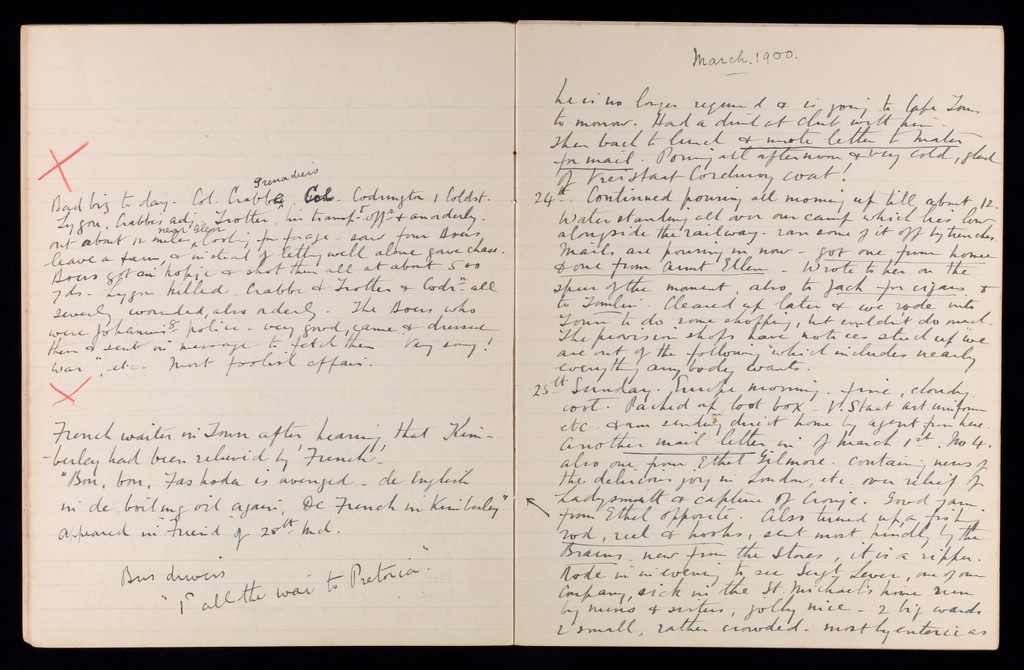 Grenadiers
Bad biz to day. Col. Crabbe Col. Codrington 1 Coldst.
Lygon, Crabbe's adj. Trotter his transpt. offr. & an orderly.
near Glen
out about 12 miles looking for forage - saw four Boers
leave a farm, & instead of letting well alone gave chase.
Boers got on kopje & shot them all at about 500
yds - Lygon killed. Crabbe & Trotter & Codn. all
severely wounded, also orderly. The Boers who
were Johannisg police - very good, came & dressed
them & sent in message to fetch them "Very sorry!
War", etc. Most foolish affair.
French waiter in Town after hearing that Kim-
-berley had been relieved by 'French'.
"Bon, bon, Fashoda is avenged - de English
in de boiling oil again, De French in Kimberley"
appeared in "Friend" of 28th Mch.
Bus drivers
"1d all the wai to Pretoria."
March. 1900.
he is no longer required & is going to Cape Town
to-morrow. Had a drink at Club with him.
Then back to lunch & wrote letter to Mater
for mail. Pouring all afternoon & very cold, glad
of Vreistaat Corduroy coat!
24th. Continued pouring all morning up till about 12.
Water standing all over our camp which lies low
alongside the railway. ran some of it off by trenches.
Mails are pouring in now - got one from home
& one from Aunt Ellen - Wrote to her on the
spur of the moment, also to Jack for cigars &
to Tomlin. Cleared up later & we rode into
Town to do some shopping, but couldn't do much.
The provision shops have notices stuck up "we
are out of the following" which includes nearly
everything anybody wants.
25th Sunday. Europe morning. fine, cloudy
cool. Packed up loot box - V. Staat art. uniform
etc. & am sending direct home by agent from here.
Another mail letter in of March 1st. No 4.
also one from Ethel Gilmore. containing news of
the delirious joy in London, etc. over relief of
Ladysmith & capture of Cronje. Good yarn
from Ethel opposite. Also turned up, a fish
rod, reel & hooks, sent most kindly by the
Brains, new from the Stores, it is a ripper.
Rode in in evening to see Sergt Lever, one of our
Company, sick in the St. Michael's home run
by nuns & sisters, jolly nice - 2 big wards
2 small, rather crowded - mostly enterics